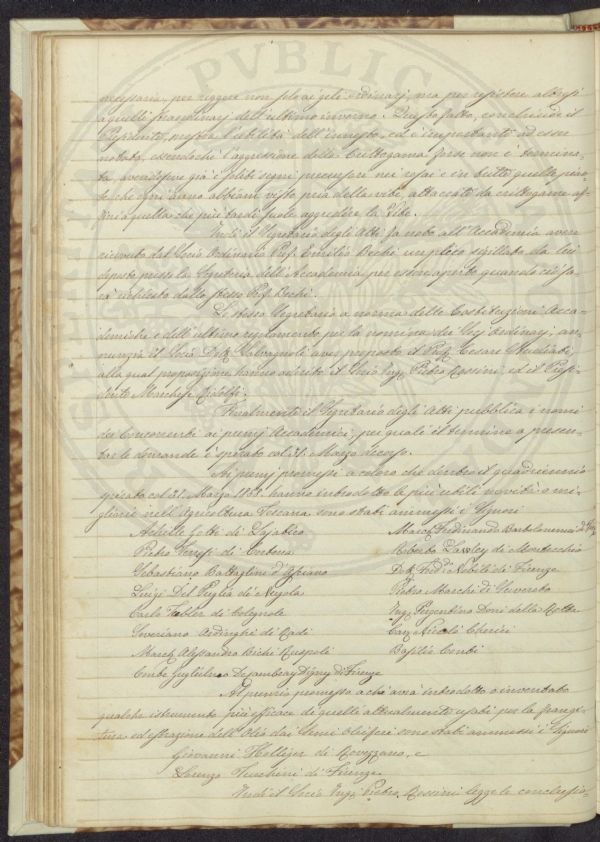 necessaria, per reggere non solo ai geli ordinarj, ma per resistere altresì
a quelli straordinarj dell'ultimo inverno. Questo fatto, conchiude il
mostra l'utilità dell'innesto, ed è importante ad esser
notato, essendochè l'aggressione della Crittogama forse non è termina-
ta, avendosene già i soliti segni precursori nei rosai e in tutte quelle pian-
te che ogni anno abbiam visto pria della vite, attaccate da crittogame af-
fini a quella che più tardi suole aggredire la Vite.
Indi il Segretario degli Atti fa noto all'Accademia avere
ricevuto dal Socio Ordinario Prof. Emilio Bechi un plico sigillato da lui
deposto presso la Segreteria dell'Accademia per essere aperto quando ciò sa-
rà richiesto dallo stesso Prof. Bechi.
Lo stesso Segretario a norma delle Costituzioni Acca-
demiche e dell'ultimo regolamento per la nomina dei Socj Ordinarj, an-
nunzia il Socio Dott. aver proposto il Prof. Cesare
alla qual proposizione hanno aderito il Socio Ing. Pietro Rossini ed il Presi-
dente Marchese Ridolfi.
Finalmente il Segretario degli Atti pubblica i nomi
dei Concorrenti ai premj Accademici, pei quali il termine a presen-
tar le domande è spirato col 31. Marzo decorso.
Ai premj promessi a coloro che dentro il quadriennio
spirato col 31. Marzo 1858. hanno introdotto le più utili novità o mi-
gliorie nell'Agricoltura Toscana sono stati ammessi i Signori
Achille Gotti di
Pietro di Cortona
Sebastiano Battaglini d'Asciano
Luigi Del Puglia di
Carlo Tabler di Bolognole
Severiano Ardinghi di Radi
March. Alessandro Bichi Ruspoli
Conte Guglielmo Digny di Firenze
March. Ferdinando Bartolommei di
Roberto Lawley di Montecchio
Dott. Fed. de Nobili di Firenze
Pietro Marchi di
Ing. Pergentino Doni della Motta
Cav. Niccolò Cherici
Basilio Conti
Al premio promesso a chi avrà introdotto o inventato
qualche istrumento più efficace di quelli attualmente usati per la frangi-
tura ed estrazione dell'Olio dai Semi Oleiferi sono stati ammessi i Signori
Giovanni di Rovezzano, e
Lorenzo di Firenze.
Indi il Socio Ing. Pietro Rossini legge le conclusio-
PVBLIC